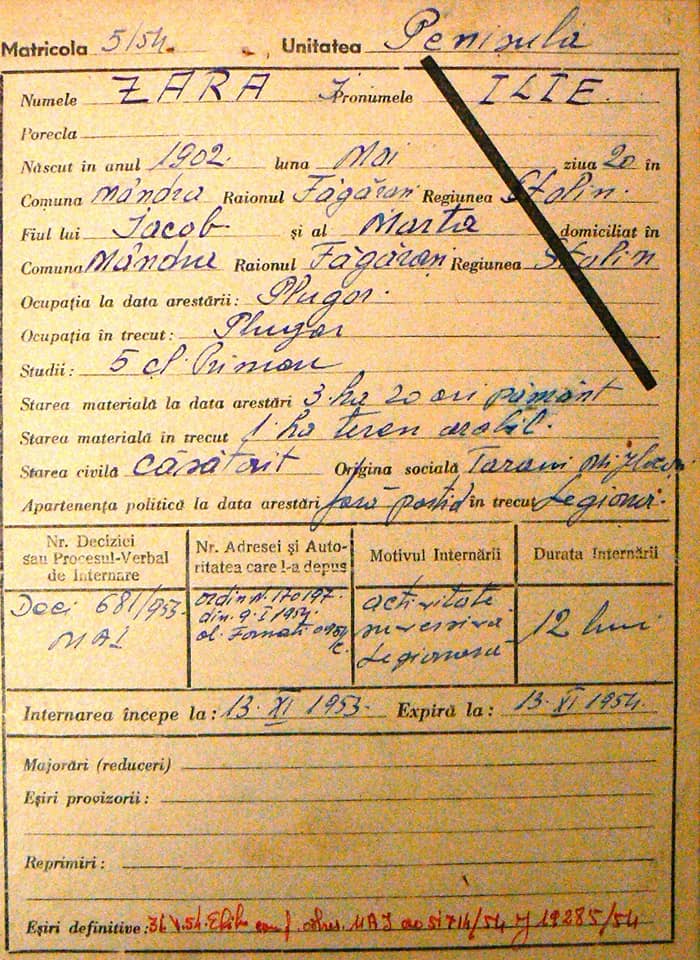 Matricola 5/54. Unitatea Penisula
Numele ZARA J Pronumele ILIE.
Porecla
Născut în anul 1902. luna Mai ziua 20 în
Comuna Mândra Raionul Făgăran Regiunea Stalin.
Fiul lui Iacob și al Marta domiciliat în
Comuna Mândra Raionul Făgăran Regiunea Stalin
Ocupația la data arestării: Plugar.
Ocupația în trecut: Plugar
Studii: 5 cl. Primare
Starea materială la data arestări 3 ha 20 ari pământ
Starea materială în trecut 1 ha teren arabil.
Starea civilă Căsătorit Origina socială Tarani Mijlocasi
Apartenența politică la data arestări fară partid în trecut Legionar.
Nr. Deciziei
sau Procesul-Verbal
de Internare
Nr. Adresei și Auto-
ritatea care l-a depus
Motivul Internării
Durata Internării
Deci 681/953.
MAI
ordin N. 170197.
din 9. I 1954.
activitate
Legionara
12 luni
Internarea începe la: 13. XI 1953. Expiră la: 13. XI 1954.
Majorări (reduceri)
Eșiri provizorii:
Reprimiri:
Eșiri definitive: 31.V.54. conf. adres. MAI 51714/54 și 19285/54